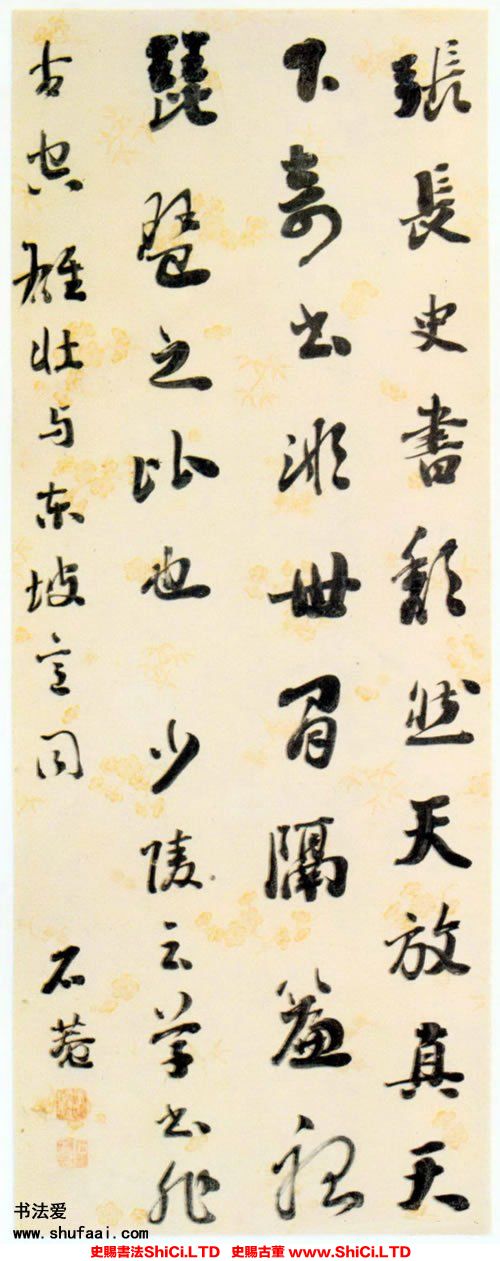 張長史書頹然天放真天
下奇書世間隔簾聽
琵琶之比也 少陵云學書非
古雄壯与東坡同
石菴
书法爱
www.shufaai.com
史賜書法ShiCi.LTD 史賜古董 www.ShiCi.LTD